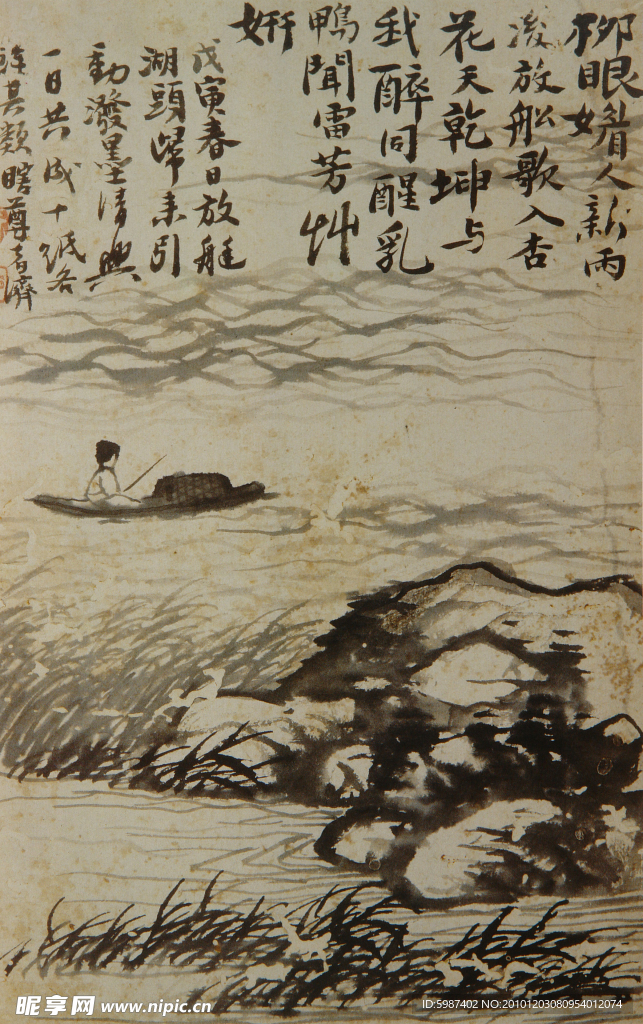 柳眼媠人新雨
后放船歌入杏
花天乾坤与
我醉同醒乳
鸭闻雷芳艸
妍
戊寅春日放艇
湖头归来引
動潑墨清興
一日共成十纸各
殊其類瞎尊者濟
昵享网 www.nipic.cn
ID:5987402 NO:20101203080954012074